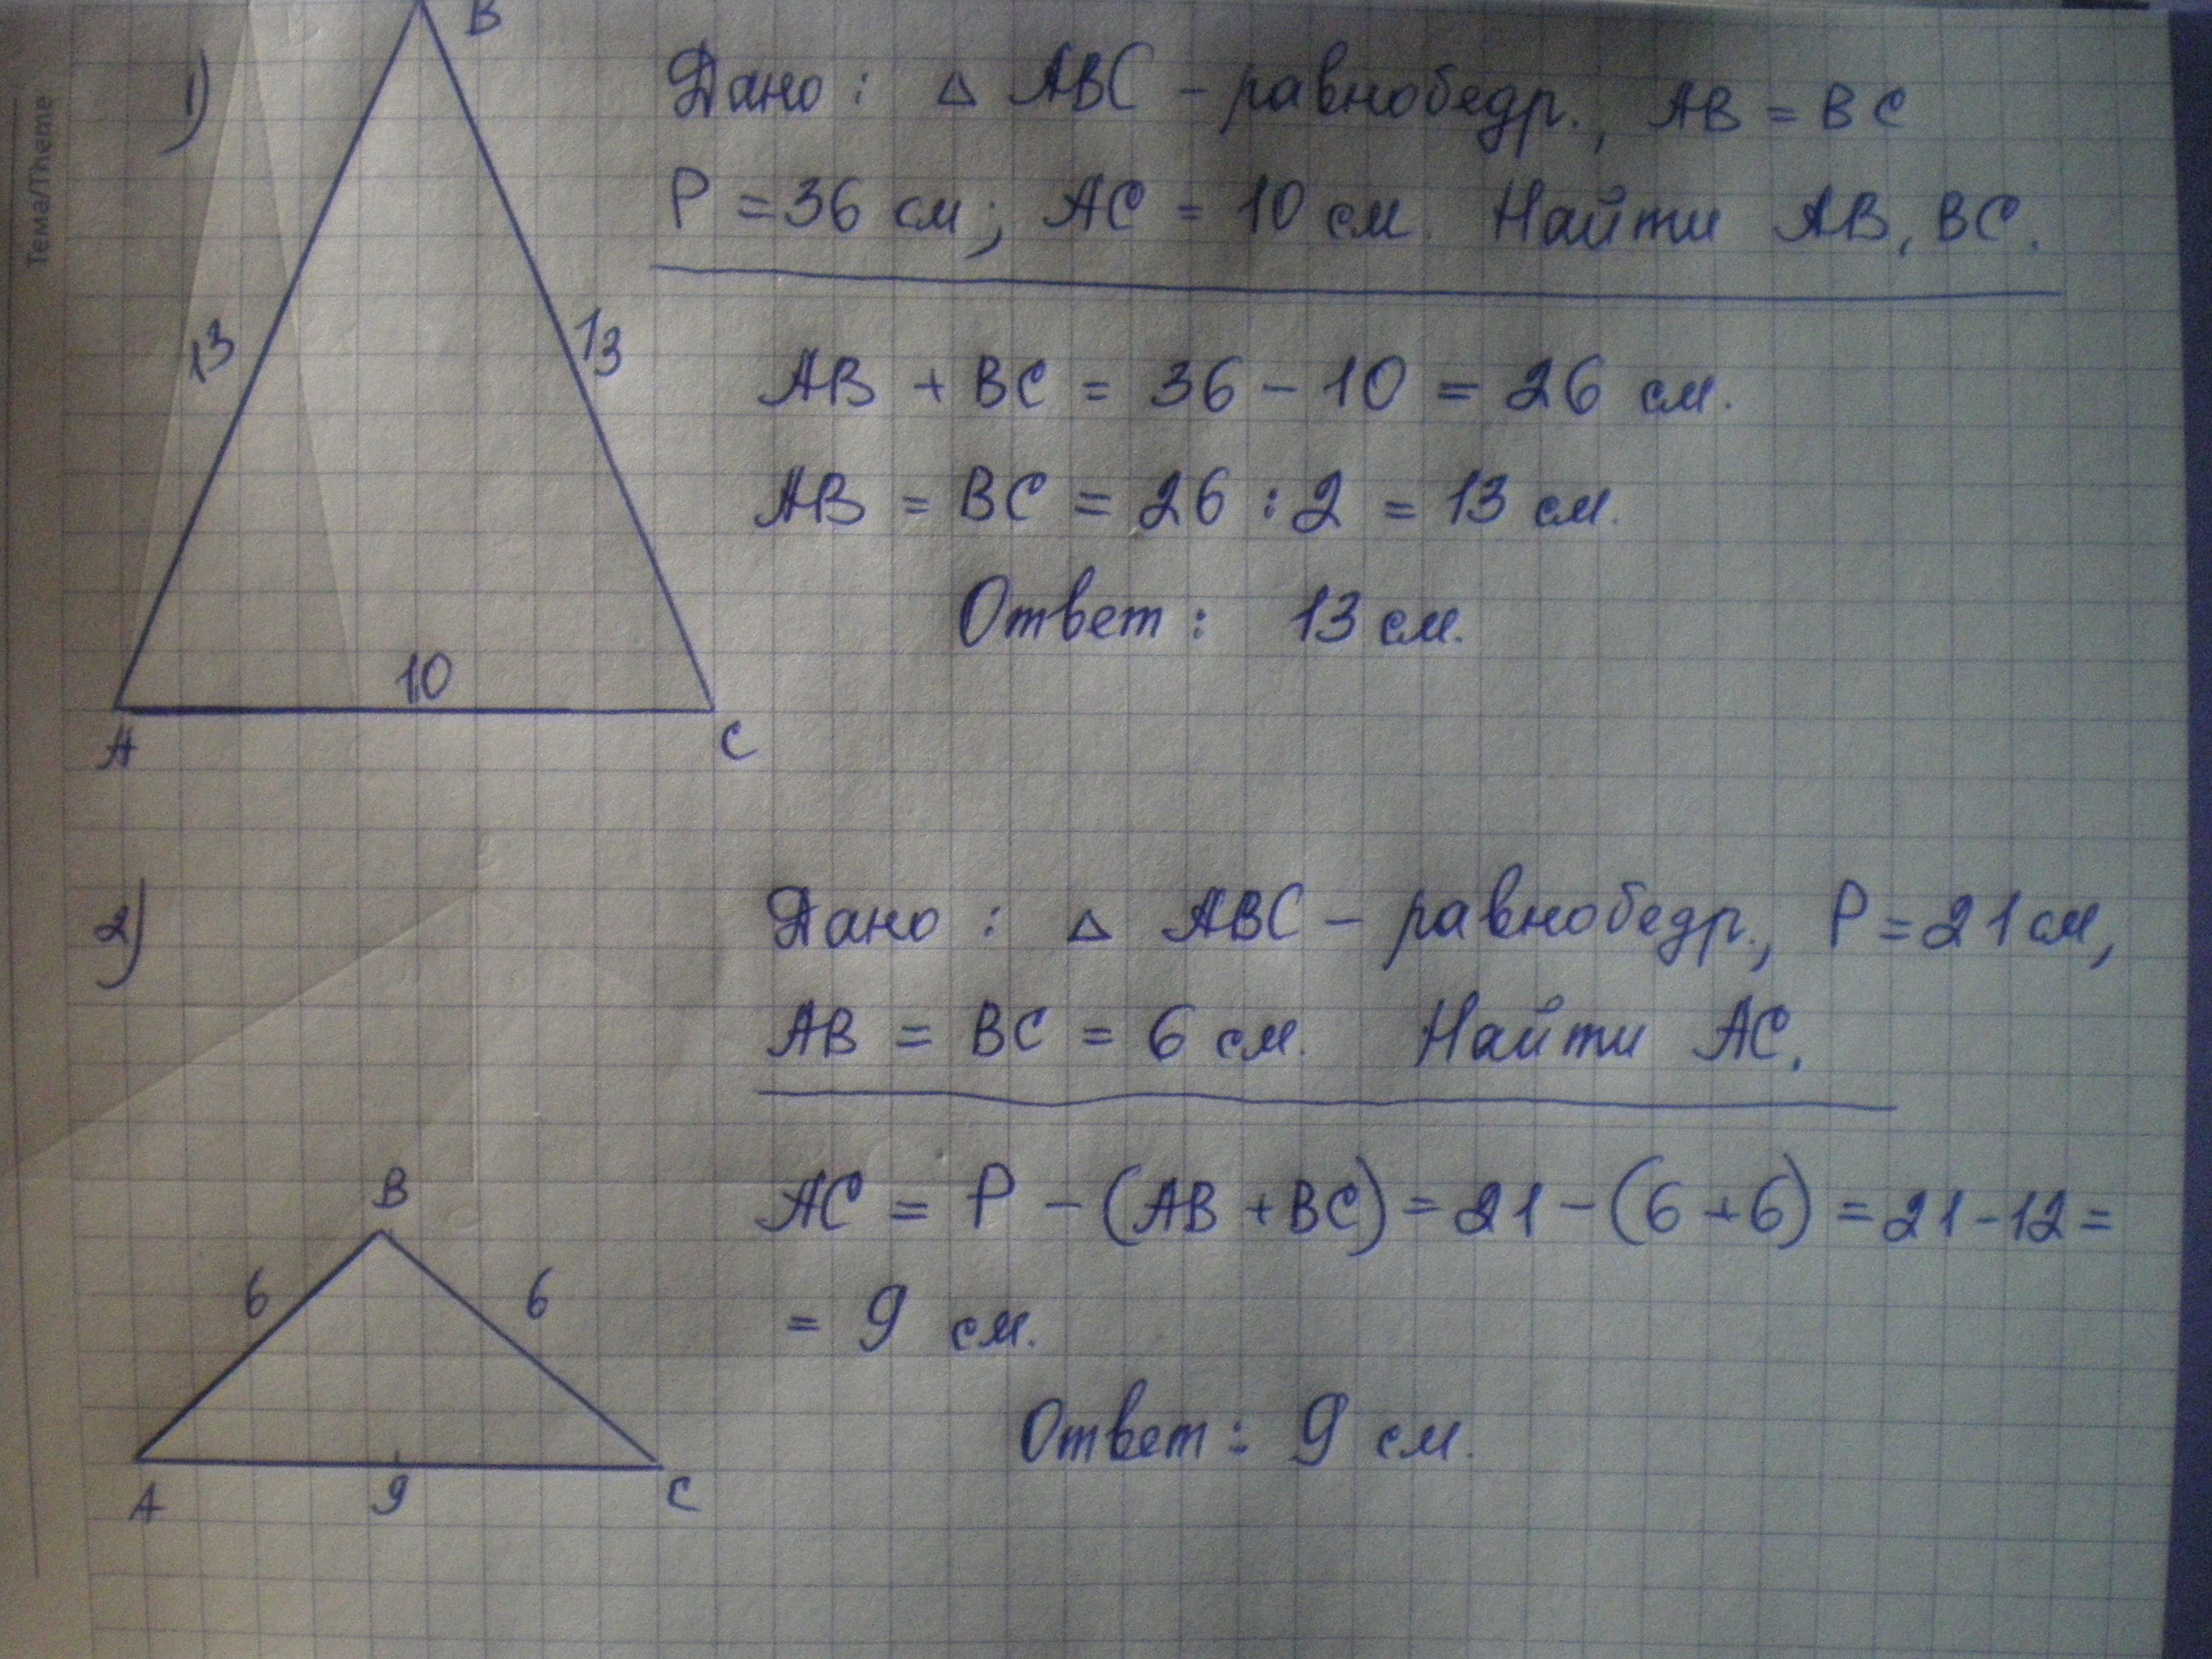 Тема/Theme
1)
B
Дано: △ ABC - равнобедр., AB = BC
P = 36 см; AC = 10 см. Найти AB, BC.
13
13
AB + BC = 36 - 10 = 26 см.
AB = BC = 26 : 2 = 13 см.
Ответ: 13 см.
10
A
C
2)
Дано: △ ABC - равнобедр., P = 21 см,
AB = BC = 6 см. Найти AC.
B
AC = P - (AB + BC) = 21 - (6 + 6) = 21 - 12 =
6
6
= 9 см.
Ответ: 9 см.
A
9
C